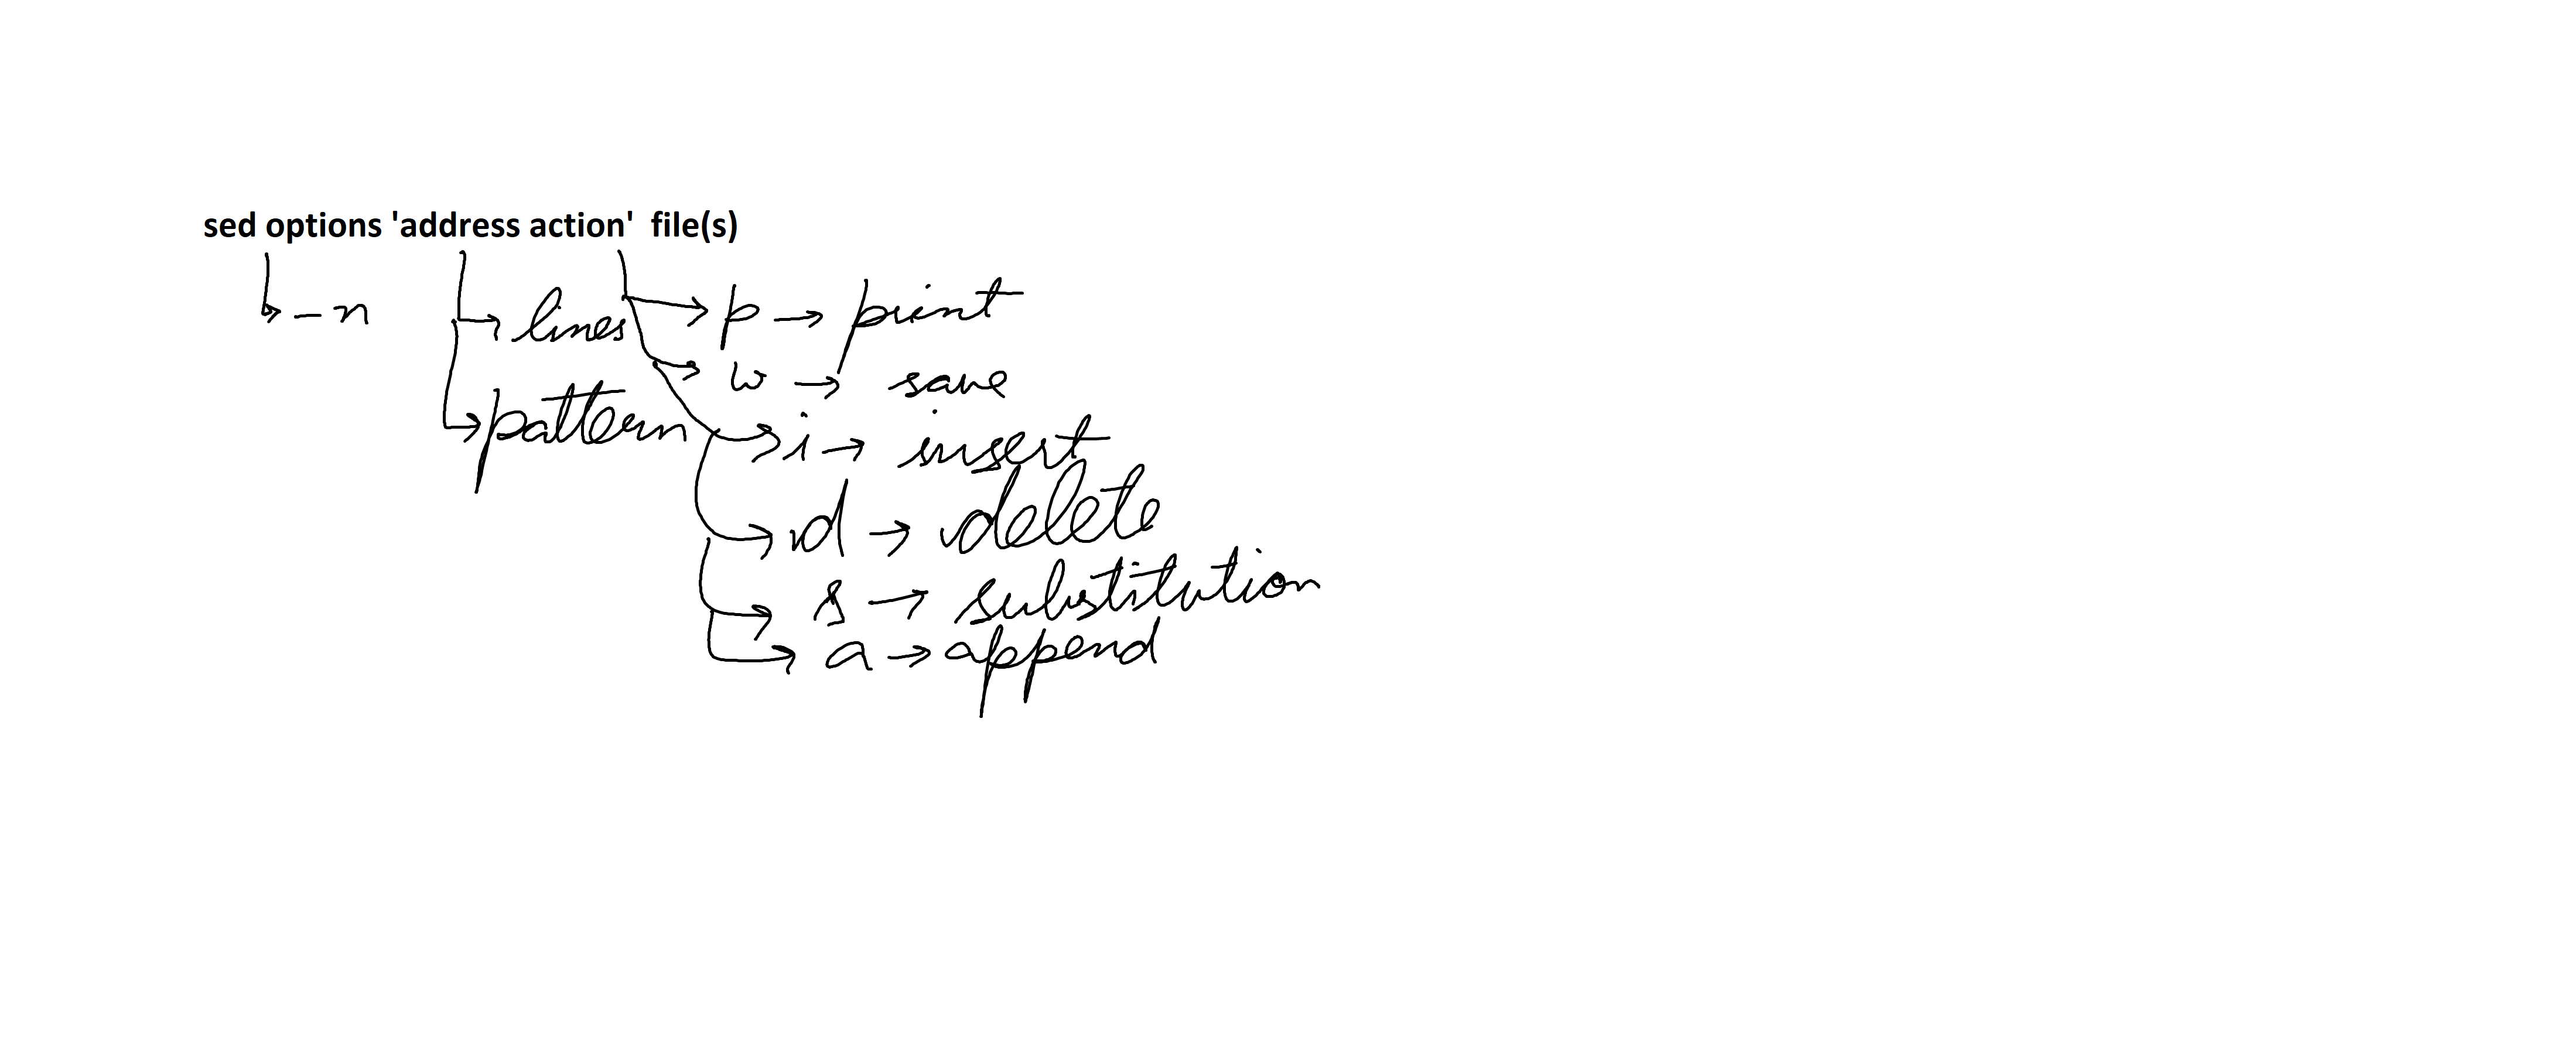 sed options 'address action' file(s)
-n lines p → print
w → save
pattern i → insert
d → delete
s → substitution
a → append